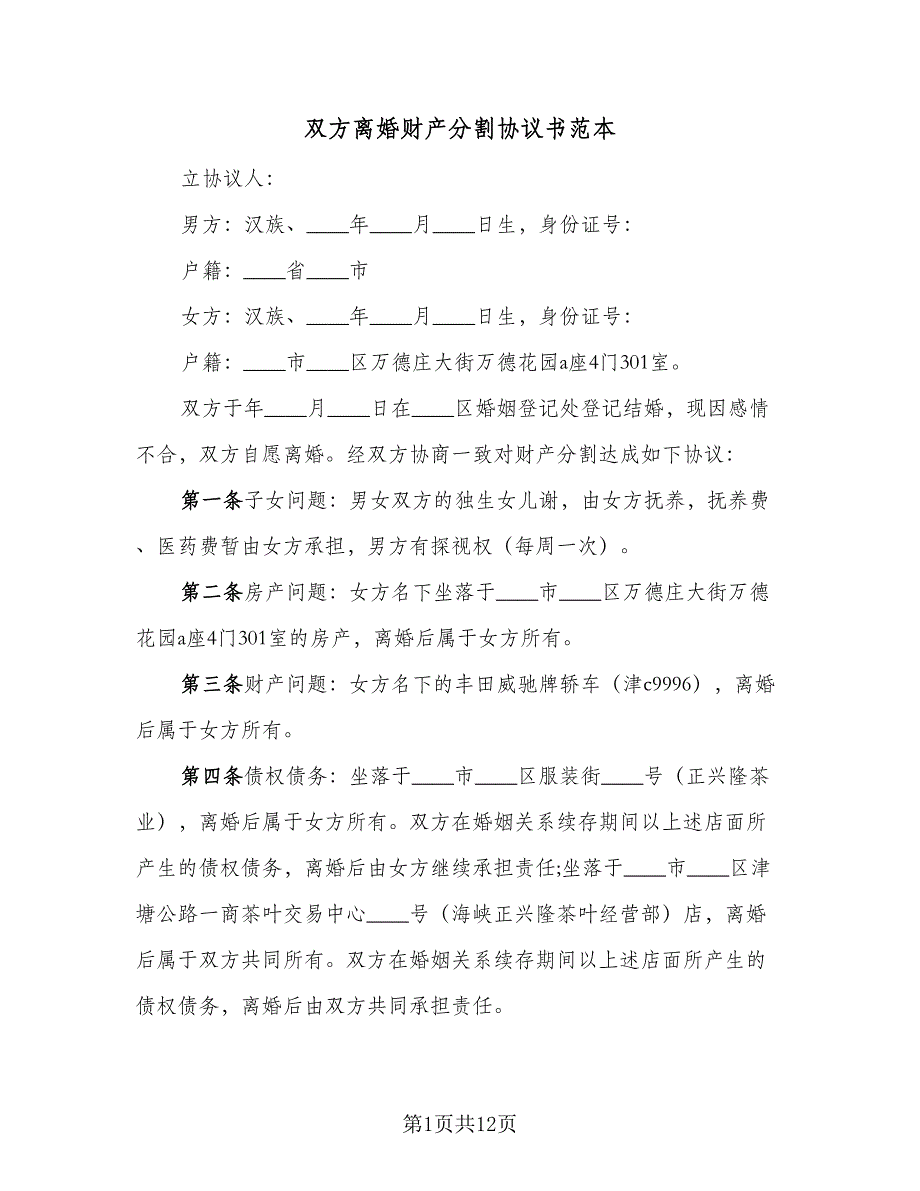 双方离婚财产分割协议书范本
立协议人：
男方：汉族、____年____月____日生，身份证号：
户籍：____省____市
女方：汉族、____年____月____日生，身份证号：
户籍：____市____区万德庄大街万德花园a座4门301室。
双方于年____月____日在____区婚姻登记处登记结婚，现因感情
不合，双方自愿离婚。经双方协商一致对财产分割达成如下协议：
第一条子女问题：男女双方的独生女儿谢，由女方抚养，抚养费
、医药费暂由女方承担，男方有探视权（每周一次）。
第二条房产问题：女方名下坐落于____市____区万德庄大街万德
花园a座4门301室的房产，离婚后属于女方所有。
第三条财产问题：女方名下的丰田威驰牌轿车（津c9996），离婚
后属于女方所有。
第四条债权债务：坐落于____市____区服装街____号（正兴隆茶
业），离婚后属于女方所有。双方在婚姻关系续存期间以上述店面所
产生的债权债务，离婚后由女方继续承担责任;坐落于____市____区津
塘公路一商茶叶交易中心____号（海峡正兴隆茶叶经营部）店，离婚
后属于双方共同所有。双方在婚姻关系续存期间以上述店面所产生的
债权债务，离婚后由双方共同承担责任。
第1页共12页